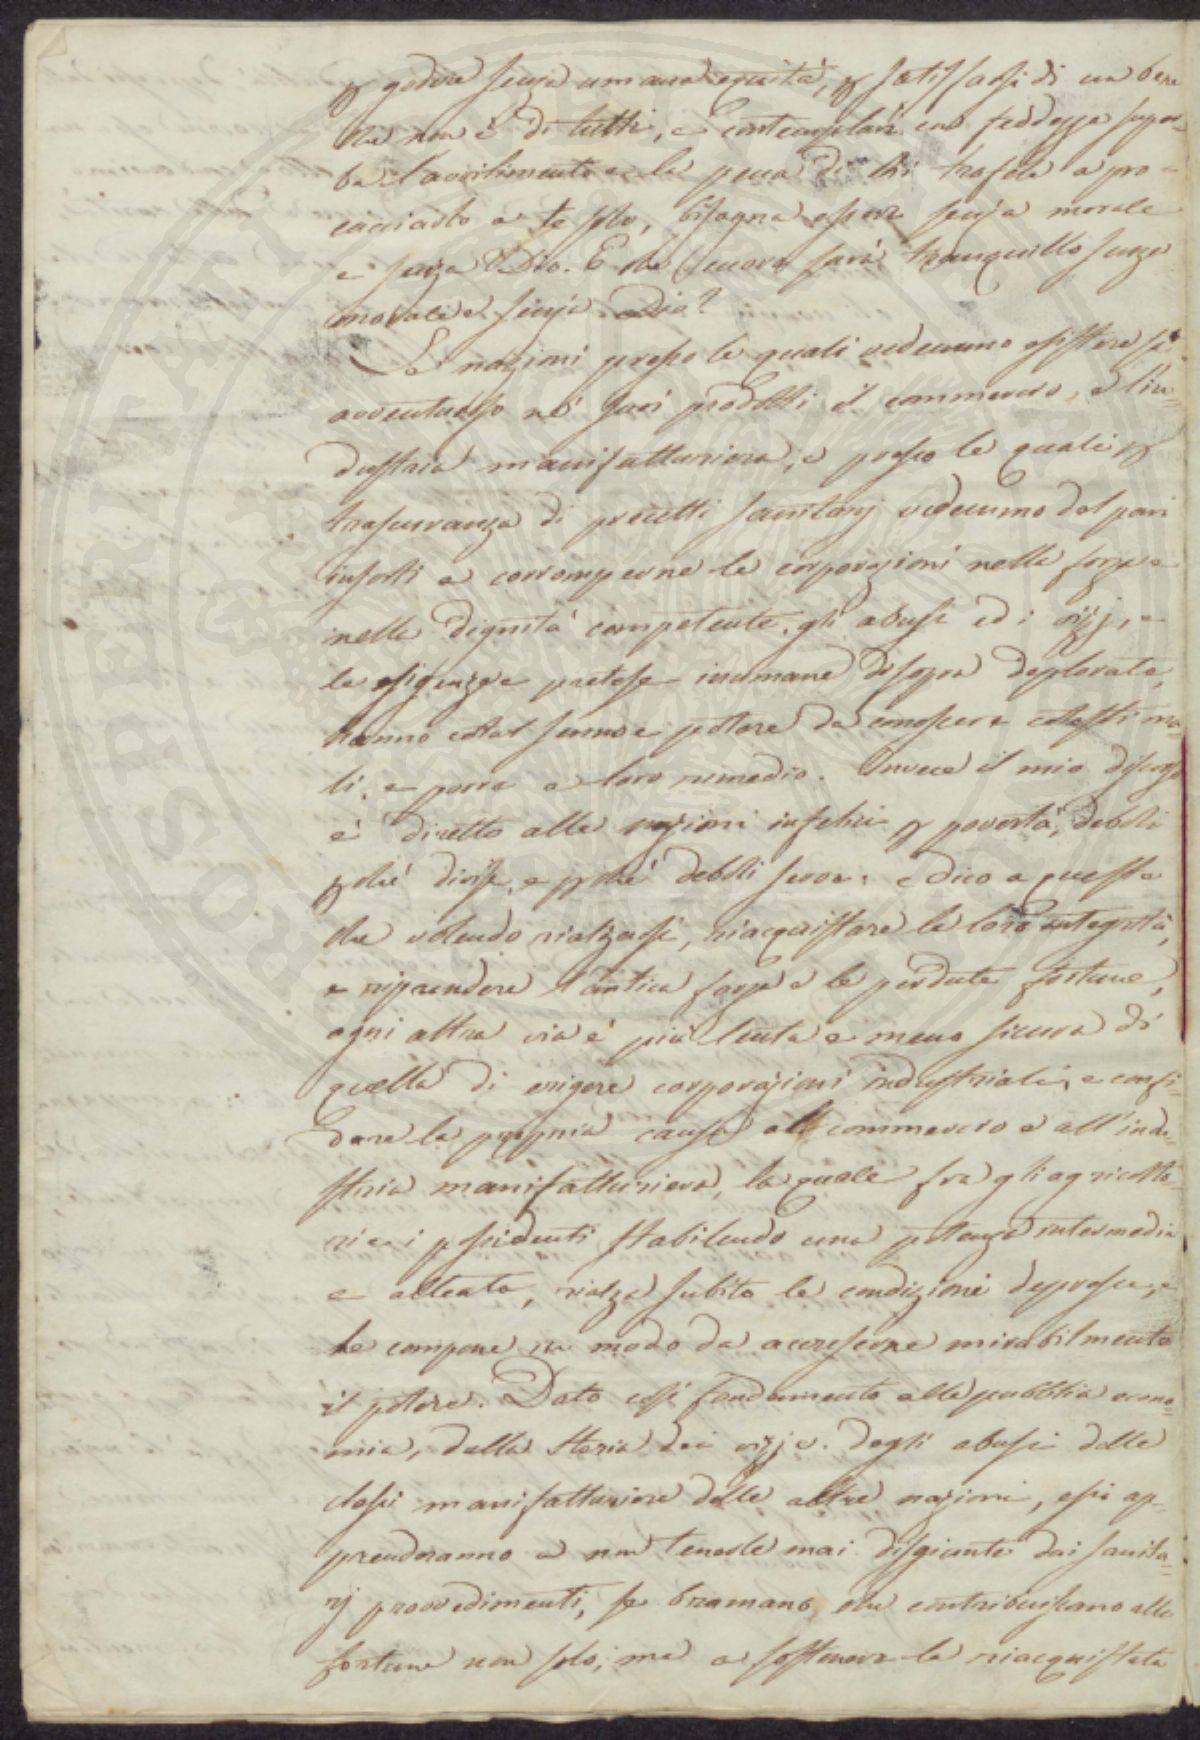 p godere senza umana equità, p satisfarsi di un bene
che non è di tutti, e contemplare con freddezza super-
ba l'avvilimento e la pena di chi trafela a pro-
cacciarlo a te solo, bisogna essere senza morale
e senza Dio. E che cuore sarà tranquillo senza
morale e senza Dio?
Le nazioni presso le quali vedemmo esistere sì
avventuroso ne' suoi prodotti il commercio, e l'in-
dustria manifatturiera, e presso le quali p
trascuranza di precetti sanitarj vedemmo del pari
insorti a corromperne le corporazioni nella forza e
nella dignità competente, gli abusi ed i vizj, e
le esigenze e pretese inumane disopra deplorate,
hanno cotal senno e potere da conoscere cotesti ma-
li, e porre a loro rimedio. Invece il mio discorso
è diretto alle nazioni infelici p povertà, deboli
pchè divise, e pchè deboli serve: e dico a queste
che volendo rialzarsi, riacquistare la loro integrità,
e riprendere l'antica forza e le perdute fortune,
ogni altra via è più lenta e meno sicura di
quella di erigere corporazioni industriali, e confi-
dare la propria causa al commercio e all'indu-
stria manifatturiera, la quale fra gli agricolto-
ri e i possidenti stabilendo una potenza intermedia
e alleata, rialza subito le condizioni depresse, e
le compone in modo da accrescerne mirabilmente
il potere. Dato così fondamento alla pubblica econo-
mia, dalla storia dei vizj e degli abusi delle
classi manifatturiere delle altre nazioni, essi ap-
prenderanno a non tenerle mai disgiunte dai sanita-
rj provvedimenti, se bramano che contribuiscano alle
fortune non solo, ma a sostenere la riacquistata